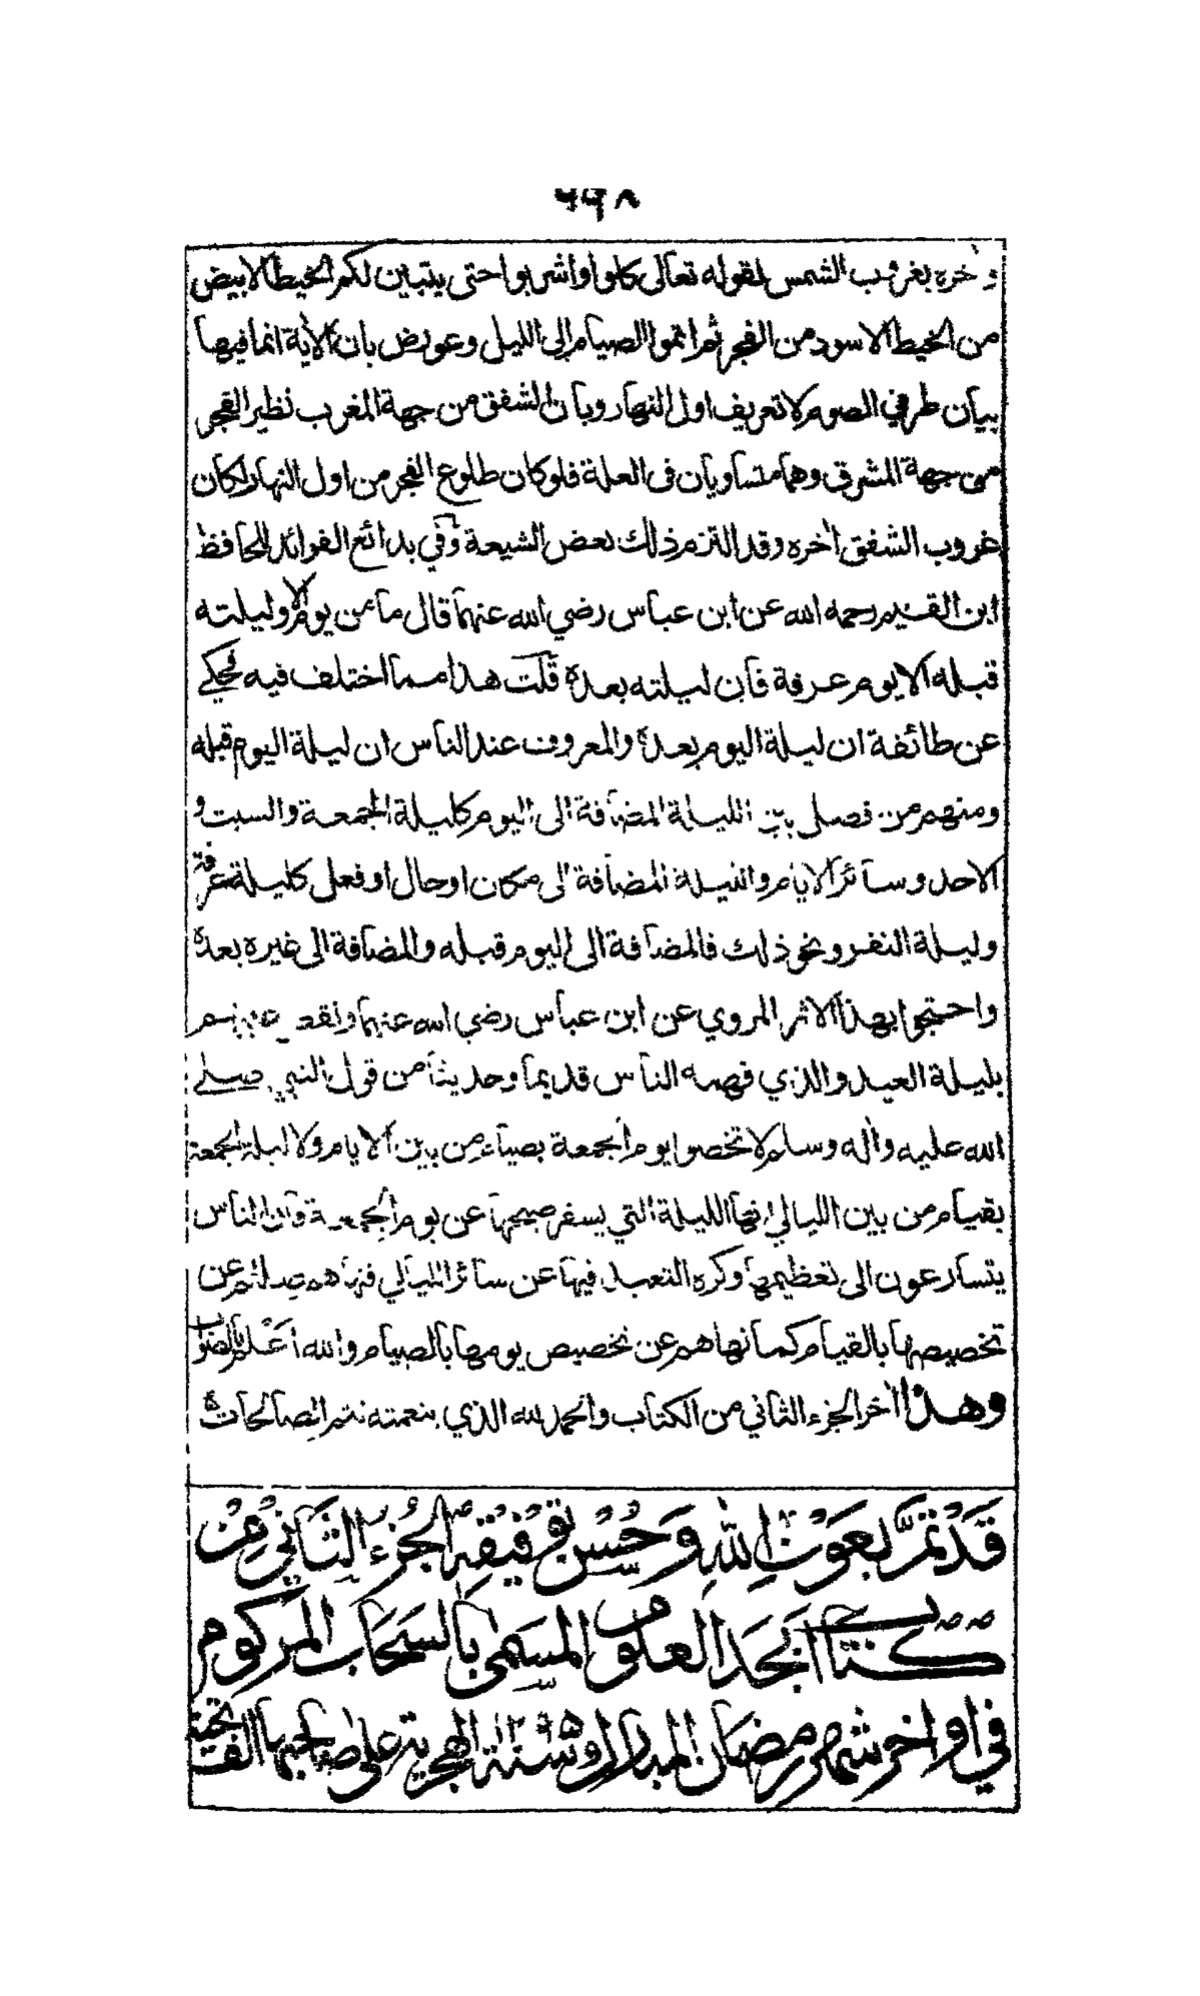 ٦٦٨
واخره بغروب الشمس لقوله تعالى كلوا واشربوا حتى يتبين لكم الخيط الابيض
من الخيط الاسود من الفجر ثم اتموا الصيام الى الليل وعورض بان الآية انما فيها
بيان طرفي الصوم لا تعريف اول النهار وبان الشفق من جهة المغرب نظير الفجر
من جهة المشرق وهما متساويان فى العلة فلو كان طلوع الفجر من اول النهار لكان
غروب الشفق اخره وقد التزم ذلك بعض الشيعة وفي بدائع الفوائد للحافظ
ابن القيم رحمه الله عن ابن عباس رضي الله عنهما قال ما من يوم الا وليلته
قبله الا يوم عرفة فان ليلته بعده قلت هذا مما اختلف فيه فحكي
عن طائفة ان ليلة اليوم بعده والمعروف عند الناس ان ليلة اليوم قبله
ومنهم من فصل بين الليلة المضافة الى اليوم كليلة الجمعة والسبت و
الاحد وسائر الايام والليلة المضافة الى مكان او حال او فعل كليلة عرفة
وليلة النفر ونحو ذلك فالمضافة الى اليوم قبله والمضافة الى غيره بعده
واحتجوا بهذا الاثر المروي عن ابن عباس رضي الله عنهما ونقض عليهم
بليلة العيد والذي فهمه الناس قديما وحديثا من قول النبي صلى
الله عليه واله وسلم لا تخصوا يوم الجمعة بصيام من بين الايام ولا ليلة الجمعة
بقيام من بين الليالي انها الليلة التي يسفر صبحها عن يوم الجمعة وان الناس
يتسارعون الى تعظيمها وكره التعبد فيها عن سائر الليالي فنهاهم صللم عن
تخصيصها بالقيام كما نهاهم عن تخصيص يومها بالصيام والله اعلم بالصواب
وهذا اخر الجزء الثاني من الكتاب والحمد لله الذي بنعمته تتم الصالحات
قد تم بعون الله وحسن توفيقه الجزء الثاني من
كتاب ابجد العلوم المسمى بالسحاب المركوم
في اواخر شهر رمضان المبارك سنة ١٢٩٥ الهجرية على صاحبها الف تحية